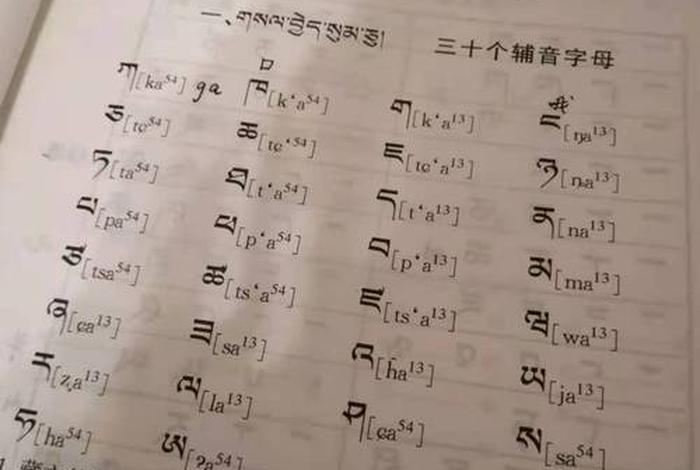 一、གསལ་བྱེད་སུམ་ཅུ། 三十个辅音字母
口 我
ཀ[ka⁵⁴] ga ཁ[k‘a⁵⁴] ག[k‘a¹³] ང[ŋa¹³]
ཅ[tɕ⁵⁴] ཆ[tɕ‘⁵⁴] ཇ[tɕ‘a¹³] ཉ[ȵa¹³]
ཏ[ta⁵⁴] ཐ[t‘a⁵⁴] ད[t‘a¹³] ན[na¹³]
པ[pa⁵⁴] ཕ[p‘a⁵⁴] བ[p‘a¹³] མ[ma¹³]
ཙ[tsa⁵⁴] ཚ[ts‘a⁵⁴] ཛ[ts‘a¹³] ཝ[wa¹³]
ཞ[ɕa¹³] ཟ[sa¹³] འ[ɦa¹³] ཡ[ja¹³]
ར[ʐa¹³] ལ[la¹³] ཤ[ɕa⁵⁴] ས[sa⁵⁴]
ཧ[ha⁵⁴] ཨ[ʔa⁵⁴]